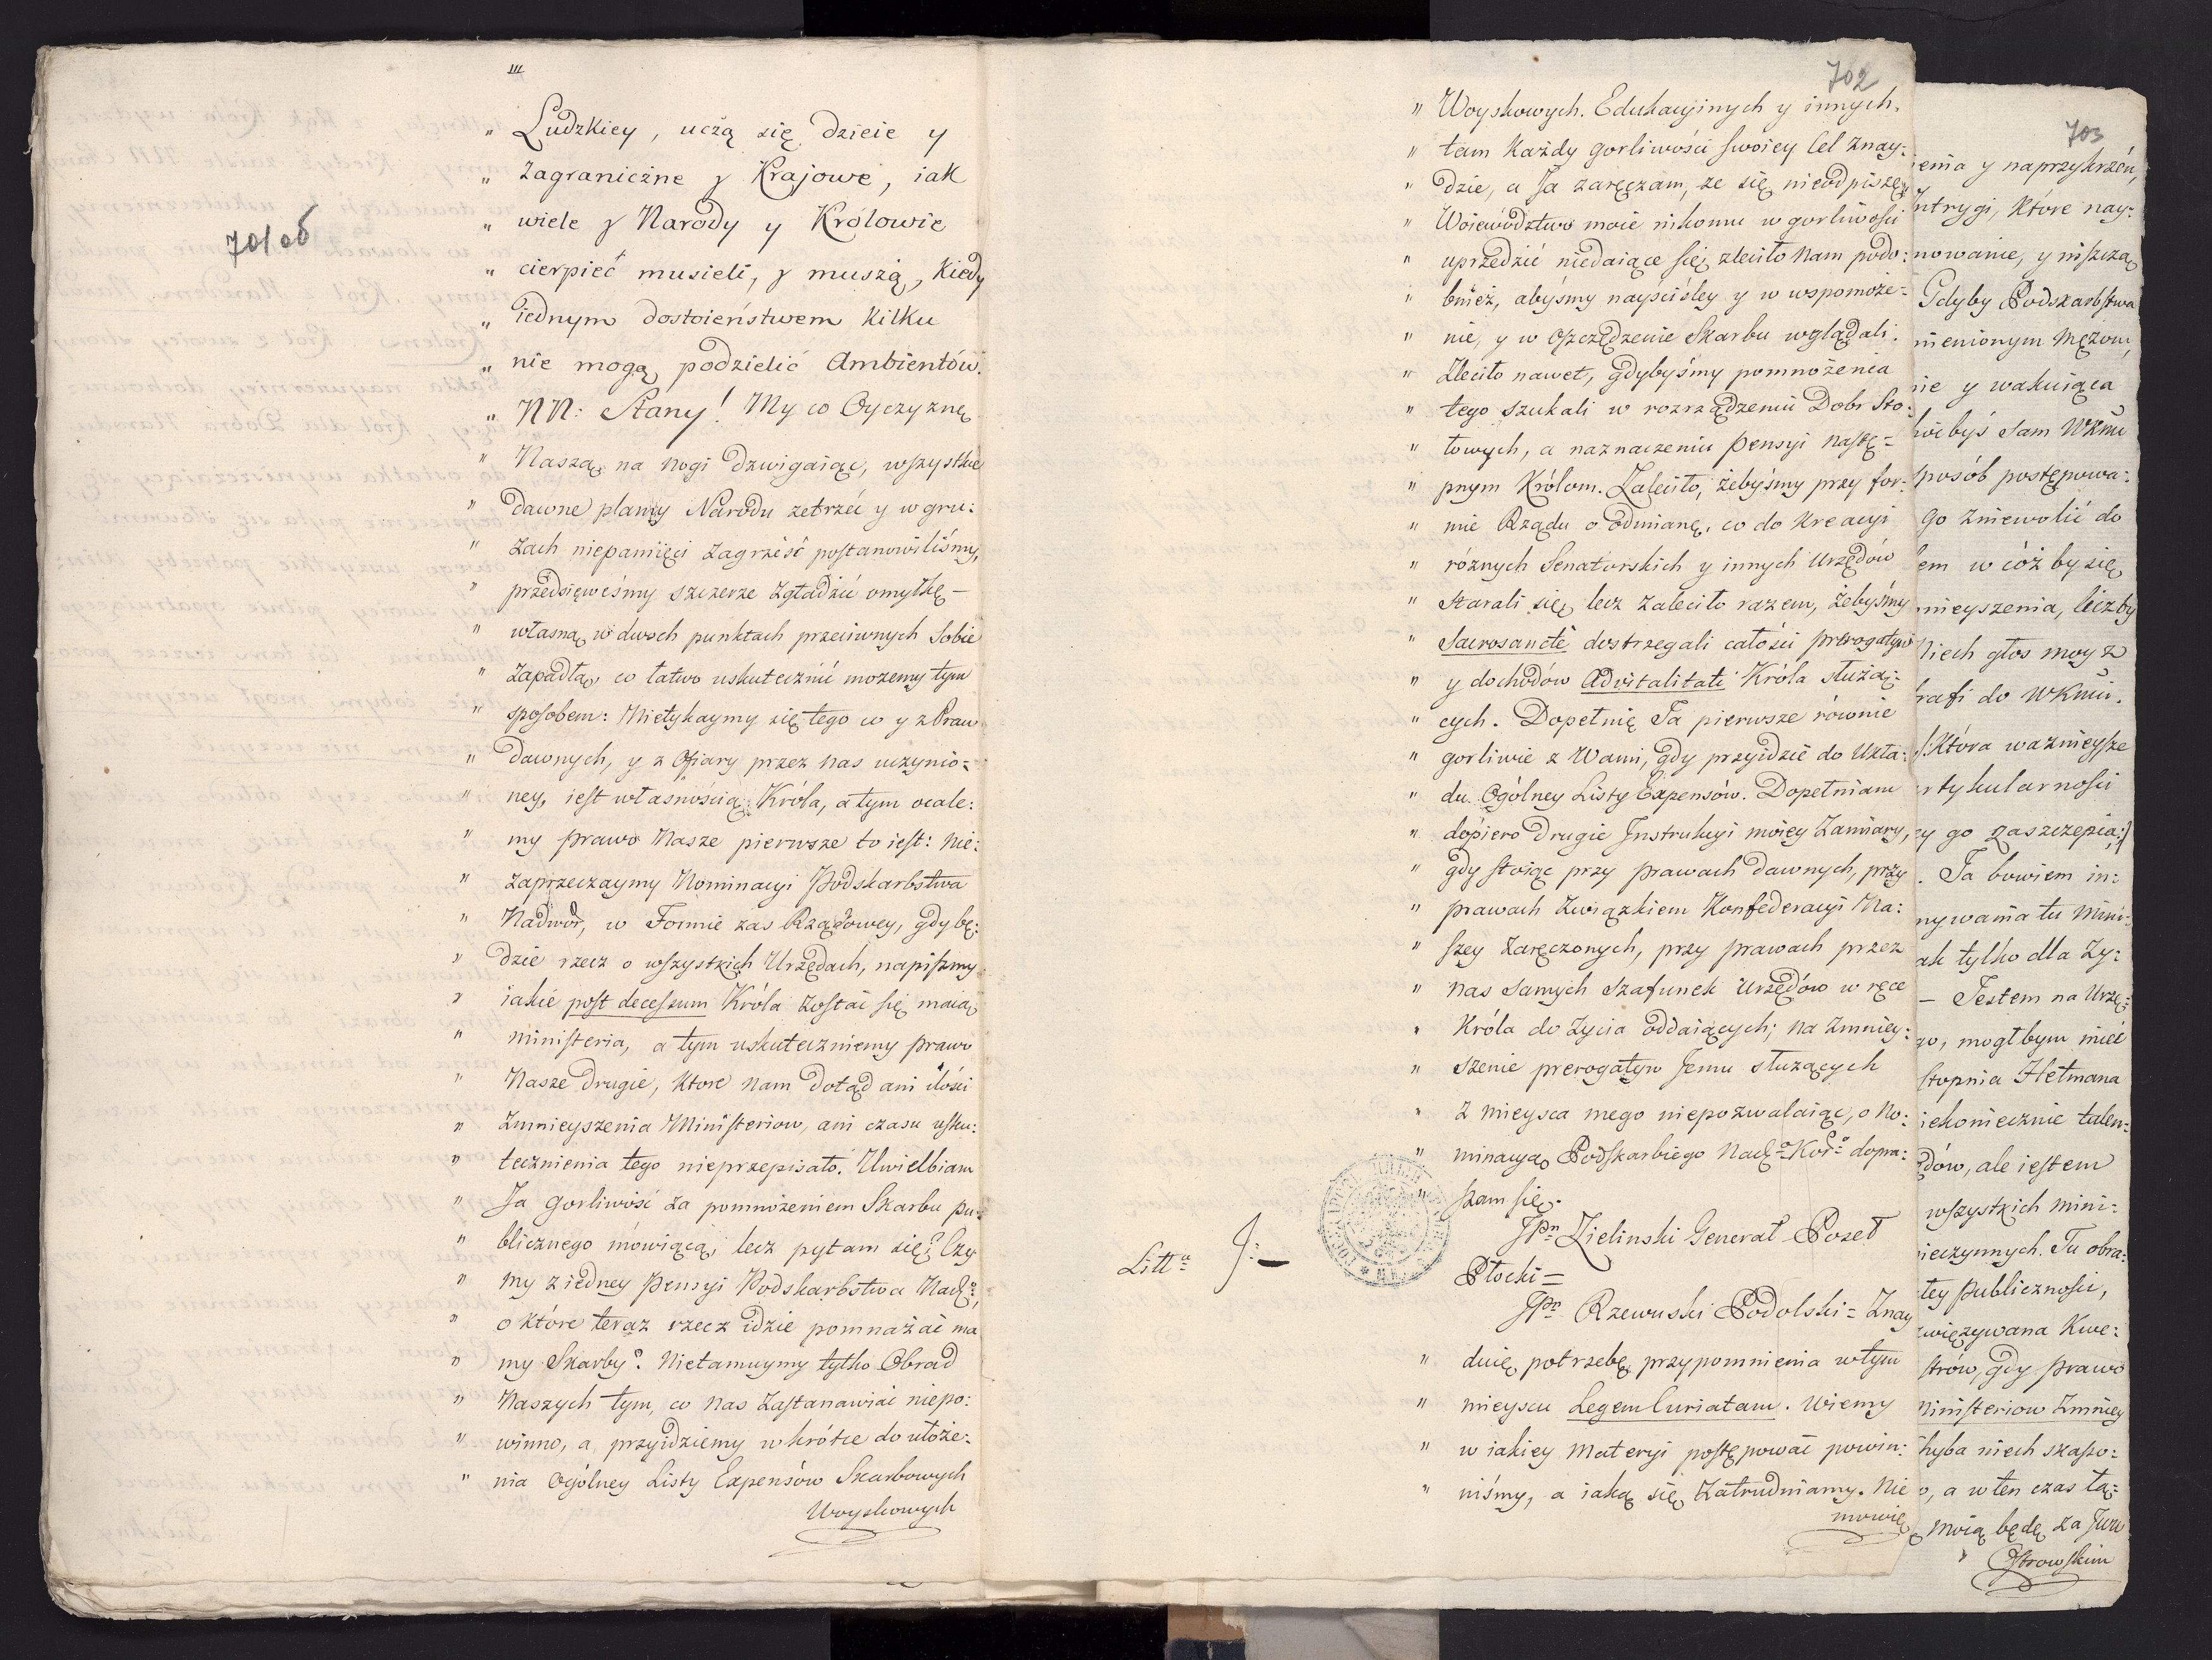 III
701 об
" Ludzkiey, uczą się dzieie y
" Zagraniczne y Krajowe, iak
" wiele y Narody y Królowie
" cierpieć musieli, y muszą, Kiedy
" iednym dostoieństwem Kilku
" nie mogą podzielić Ambientów.
" NN: Stany! My co Oyczyznę
" Naszą na nogi dzwigaiąc, wszystkie
" dawne plamy Narodu zetrzéć y w gru:
" zach niepamięci zagrześć postanowiliśmy,
" przedsięweśmy szczerze zgładzić omyłkę –
" własną w dwóch punktach przeciwnych Sobie
" Zapadłą, co łatwo uskutecznić możemy tym
" sposobem: Nietykaymy się tego co y z Praw
" dawnych, y z Ofiary przez nas uczynio=
" ney, iest własnością Króla, a tym ocale:
" my prawo Nasze pierwsze to iest: Nie:
" zaprzeczaymy Nominacyi Podskarbstwa
" Nadwor, w Formie zas Rządowey, gdy bę:
" dzie rzecz o wszystkich Urzędach, napiszmy
" iakie post decessum Króla zostać się maią
" ministeria, a tym uskuteczniemy prawo
" Nasze drugie, Ktore nam dotąd ani ilości
" Zmnieyszenia Ministeriow, ani czasu usku:
" tecznienia tego nieprzepisało. Uwielbiam
" Ja gorliwość za pomnożeniem Skarbu pu:
" blicznego mówiącą, lecz pytam się? Czy
" my z iedney Pensyi Podskarbstwa Nadgo,
" o które teraz rzecz idzie pomnażać ma
" my Skarby? Nietamuymy tylko Obrad
" Naszych tym, co nas Zastanawiać niepo:
" winno, a przyidziemy wkrótce do ułoże:
" nia Ogólney Listy Expensów Skarbowych
Woyskowych
702
" Woyskowych. Edukacyinych y innych,
" tam Każdy gorliwości swoiey Cel znay:
" dzie, a Ja zaręczam, ze się nieodpiszę
" Woiewództwo moie nikomu w gorliwości
" uprzedzić niedaiące się, zleciło Nam podo:
" bnież, abyśmy nayściśley y w wspomoże=
" nie, y w Oszczędzenie Skarbu wglądali.
" Zleciło nawet, gdybyśmy pomnożenia
" tego szukali w rozrządzeniu Dobr Sto:
" łowych, a naznaczeniu Pensyi nastę=
" pnym Królom. Zaleciło, żebyśmy przy for:
" mie Rządu o odmianę, co do Kreacyi
" różnych Senatorskich y innych Urzędów
" Starali się, lecz zaleciło razem, żebyśmy
" Sacrosancte dostrzegali całości prerogatyw
" y dochodów Advitalitati Króla służą:
" cych. Dopełnię Ja pierwsze równie
" gorliwie z Wami, gdy przyidzie do Ukła:
" du Ogólney Listy Expensów. Dopełniam
" dopiero drugie Instrukcyi moiey Zamiary,
" gdy stoiąc przy prawach dawnych, przy
" prawach Związkiem Konfederacyi Na:
" szey zaręczonych, przy prawach przez
" Nas Samych Szafunek Urzędów w ręce
" Króla do życia oddaiących; na zmniey:
" szenie prerogatyw Jemu służących
" Z mieysca mego niepozwalaiąc, o No:
" minacyą Podskarbiego Nadgo Korgo dopra:
" szam się.
JPn Zielinski Generał Poseł
Litta J:– Płocki =
JPn Rzewuski Podolski = Znay
" duię potrzebę przypomnienia w tym
" mieyscu Legem Curiatam. Wiemy
" w iakiey Materyi postępować powin:
" niśmy, a iaką się Zatrudniamy. Nie
mowię
703
ienia y naprzykrzeń,
ntrygi, Które nay:
nowanie, y niszczą
Gdyby Podskarbstwa
mienionym Mężom,
nie y wakuiąca
sposób postępowa:
go zniewolić do
em w cóż by się
mnieyszenia, liczby
Niech głos moy z
trafi do WKmci.
Która ważnieysze
rtykularności
y go zaszczepia:
. Ja bowiem in:
nywania tu Mini:
ak tylko dla Zy:
– Jestem na Urzę:
go, mogłbym mieć
stopnia Hetmana
iekoniecznie talen:
dów, ale iestem
wszystkich mini:
ieczynnych. Tu obra:
tey publiczności,
więzywana Kwe:
strów, gdy prawo
Ministeriow Zmniey
hyba niech skaso:
o, a w ten czas tą:
moią będę za Jww
" Ostrowskim